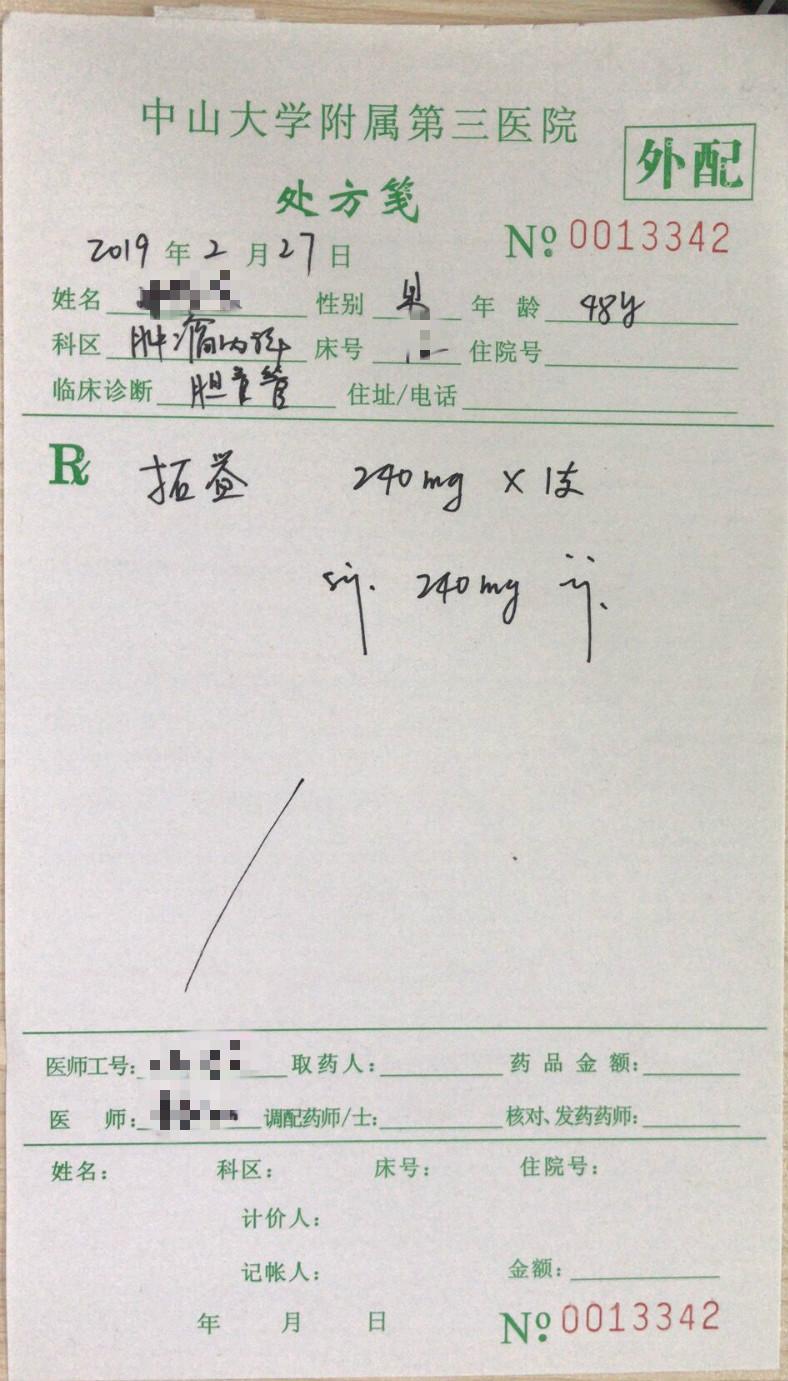 中山大学附属第三医院
外配
处方笺
2019年2月27日
№ 0013342
姓名 性别 男 年龄 48y
科区 肿瘤内科 床号 住院号
临床诊断 住址/电话
R 拓益 240mg × 1支
240mg
医师工号: 取药人: 药品金额:
医师: 调配药师/士: 核对、发药药师:
姓名: 科区: 床号: 住院号:
计价人:
记帐人: 金额:
年 月 日 № 0013342